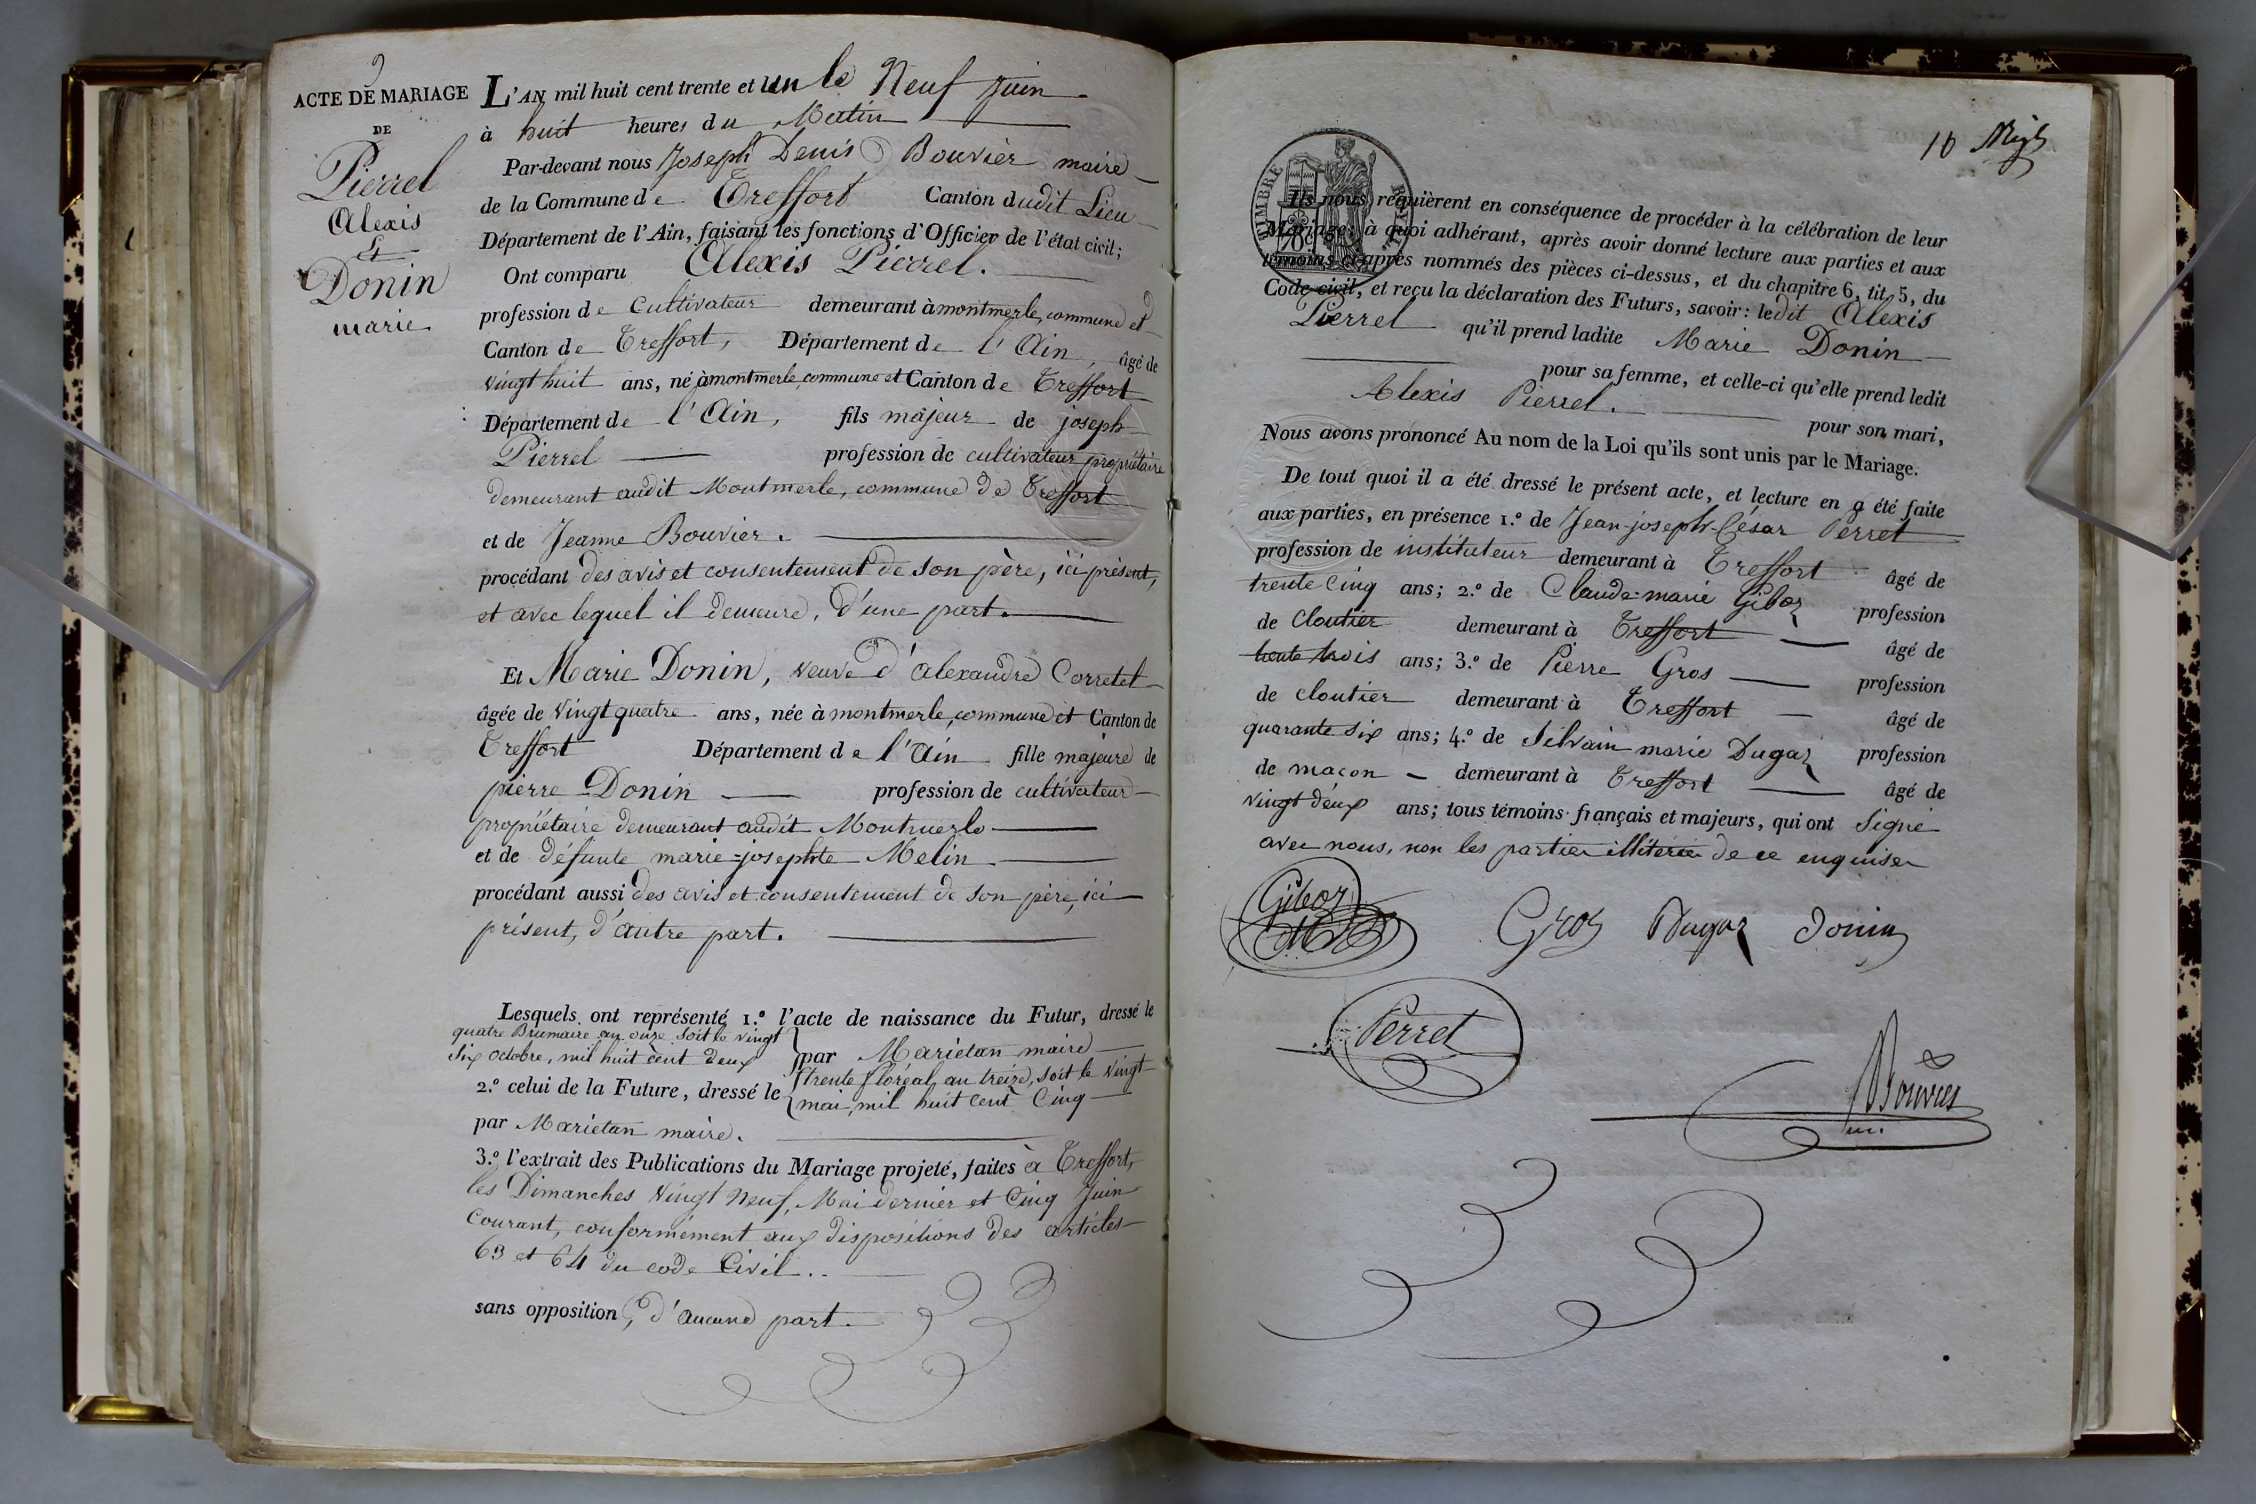 9
ACTE DE MARIAGE
DE
Pierrel
Alexis
Et
Donin
marie
L'AN mil huit cent trente et un le Neuf juin
à huit heures du Matin
Par-devant nous Joseph Denis Bouvier maire
de la Commune de Treffort Canton dudit Lieu
Département de l'Ain, faisant les fonctions d'Officier de l'état civil;
Ont comparu Alexis Pierrel.
profession de Cultivateur demeurant à montmerle, commune et
Canton de Treffort, Département de l'Ain, âgé de
vingt huit ans, né à montmerle, commune et Canton de Treffort
Département de l'Ain, fils majeur de joseph
Pierrel profession de cultivateur propriétaire
demeurant audit Montmerle, commune de Treffort
et de Jeanne Bouvier.
procédant des avis et consentement de son père, ici présent,
et avec lequel il demeure, d'une part.
Et Marie Donin, veuve d'alexandre Corretel
âgée de vingt quatre ans, née à montmerle, commune et Canton de
Treffort Département de l'Ain fille majeure de
pierre Donin profession de cultivateur
propriétaire demeurant audit Montmerle
et de défunte marie=josephte Melin
procédant aussi des avis et consentement de son père, ici
présent, d'autre part.
Lesquels ont représenté 1.º l'acte de naissance du Futur, dressé le
quatre Brumaire an onze, soit le vingt
six octobre, mil huit cent deux par Marietan maire
2.º celui de la Future, dressé le trente floréal an treize, soit le vingt
mai, mil huit cent Cinq
par Marietan maire.
3.º l'extrait des Publications du Mariage projeté, faites à Treffort,
les Dimanches vingt neuf, Mai dernier et Cinq Juin
Courant, conformément aux dispositions des articles
63 et 64 du code Civil..
sans opposition, d'aucune part.
10
TIMBRE
ROYAL
70c
Ils nous requièrent en conséquence de procéder à la célébration de leur
Mariage; à quoi adhérant, après avoir donné lecture aux parties et aux
témoins ci-après nommés des pièces ci-dessus, et du chapitre 6, tit. 5, du
Code civil, et reçu la déclaration des Futurs, savoir: ledit Alexis
Pierrel qu'il prend ladite Marie Donin
pour sa femme, et celle-ci qu'elle prend ledit
Alexis Pierrel. pour son mari,
Nous avons prononcé Au nom de la Loi qu'ils sont unis par le Mariage.
De tout quoi il a été dressé le présent acte, et lecture en a été faite
aux parties, en présence 1.º de Jean-joseph-César Perret
profession de instituteur demeurant à Treffort âgé de
trente Cinq ans; 2.º de Claude-marie Giboz profession
de Cloutier demeurant à Treffort âgé de
trente trois ans; 3.º de Pierre Gros profession
de cloutier demeurant à Treffort âgé de
quarante six ans; 4.º de Silvain marie Dugaz profession
de maçon demeurant à Treffort âgé de
vingt deux ans; tous témoins français et majeurs, qui ont signé
avec nous, non les parties illitérées de ce enquises
Giboz
Gros Dugaz Donin
Perret
Bouvier